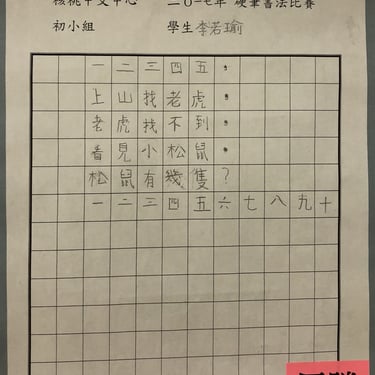 核桃中文中心 二〇一七年 硬筆書法比賽
初小組 學生 李若瑜
一二三四五，
上山找老虎，
老虎找不到，
看見小松鼠，
松鼠有幾隻？
一二三四五六七八九十